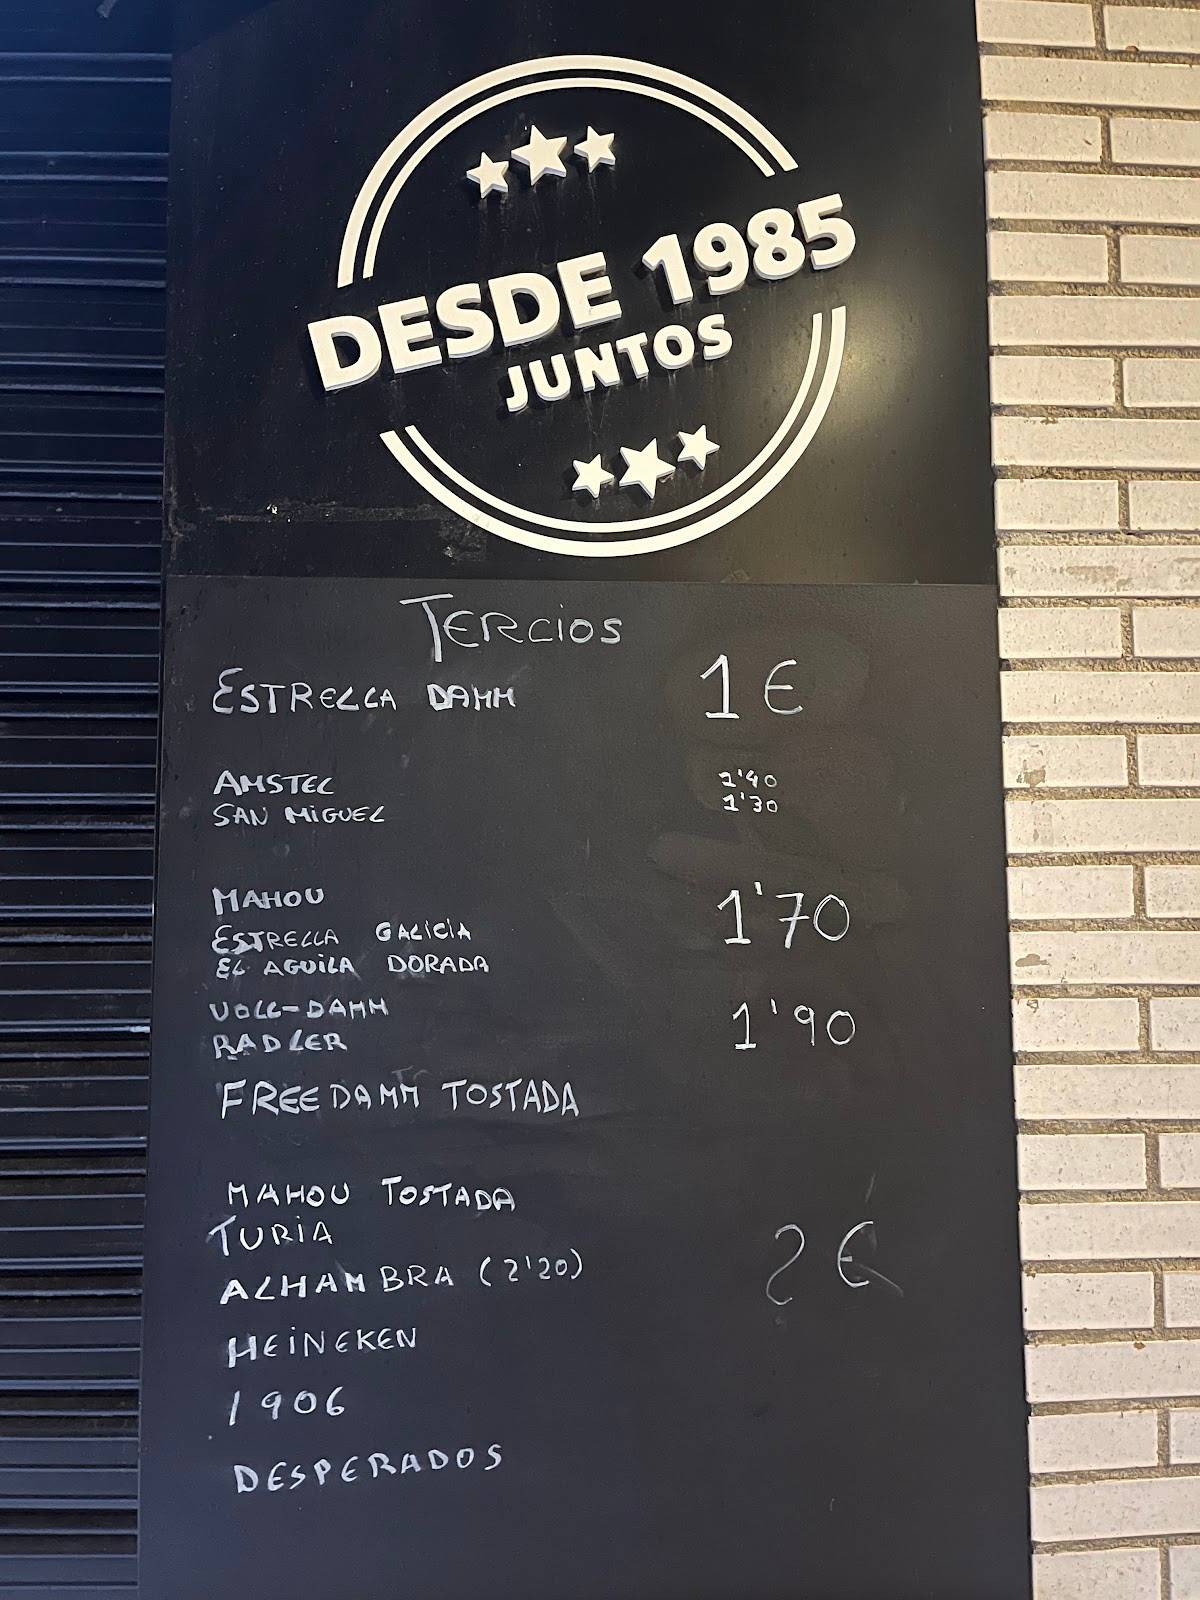 DESDE 1985
JUNTOS
TERCIOS
ESTRELLA DAMM 1€
AMSTEL 1'40
SAN MIGUEL 1'30
MAHOU
ESTRELLA GALICIA 1'70
EL AGUILA DORADA
VOLL-DAMM
RADLER 1'90
FREEDAMM TOSTADA
MAHOU TOSTADA
TURIA
ALHAMBRA (2'20) 2€
HEINEKEN
1906
DESPERADOS